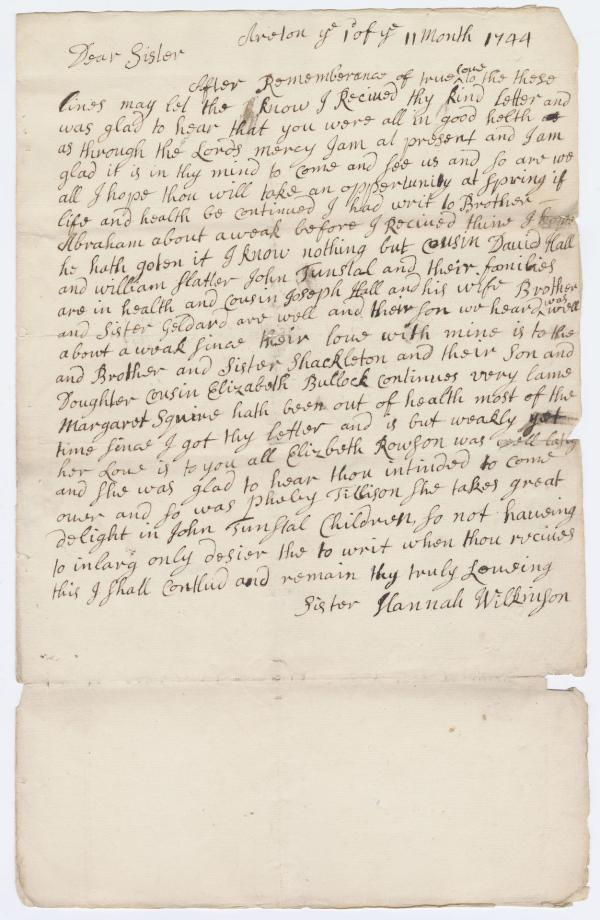 Areton ye 1 of ye 11 Month 1744
Dear Sister
After Rememberance of true love to the these
lines may let the know I Recived thy kind Letter and
was glad to hear that you were all in good helth
as through the Lords mercy I am at present and I am
glad it is in thy mind to come and see us and so are we
all I hope thou will take an oppertunity at Spring if
life and health be continued I had writ to Brother
Abraham about a weak before I Recived thine I hope
he hath goten it I know nothing but Cousin David Hall
and William Slatter John Tunstal and their families
are in health and Cousin Joseph Hall and his wife Brother
and Sister Geldard are well and their son we heard was well
about a weak sinae their love with mine is to the
and Brother and Sister Shackleton and their Son and
Doughter Cousin Elizabeth Bullock Continues very lame
Margaret Squire hath been out of health most of the
time sinae I got thy letter and is but weakly yet
her Love is to you all Elizbeth Rowson was well laty
and she was glad to hear thou intinded to come
over and so was Pheley Tillison she takes great
delight in John Tunstal Children, so not haveing
to inlarg only desier the to writ when thou recives
this I shall Conllud and remain thy truly Loveing
Sister Hannah Wilkinson